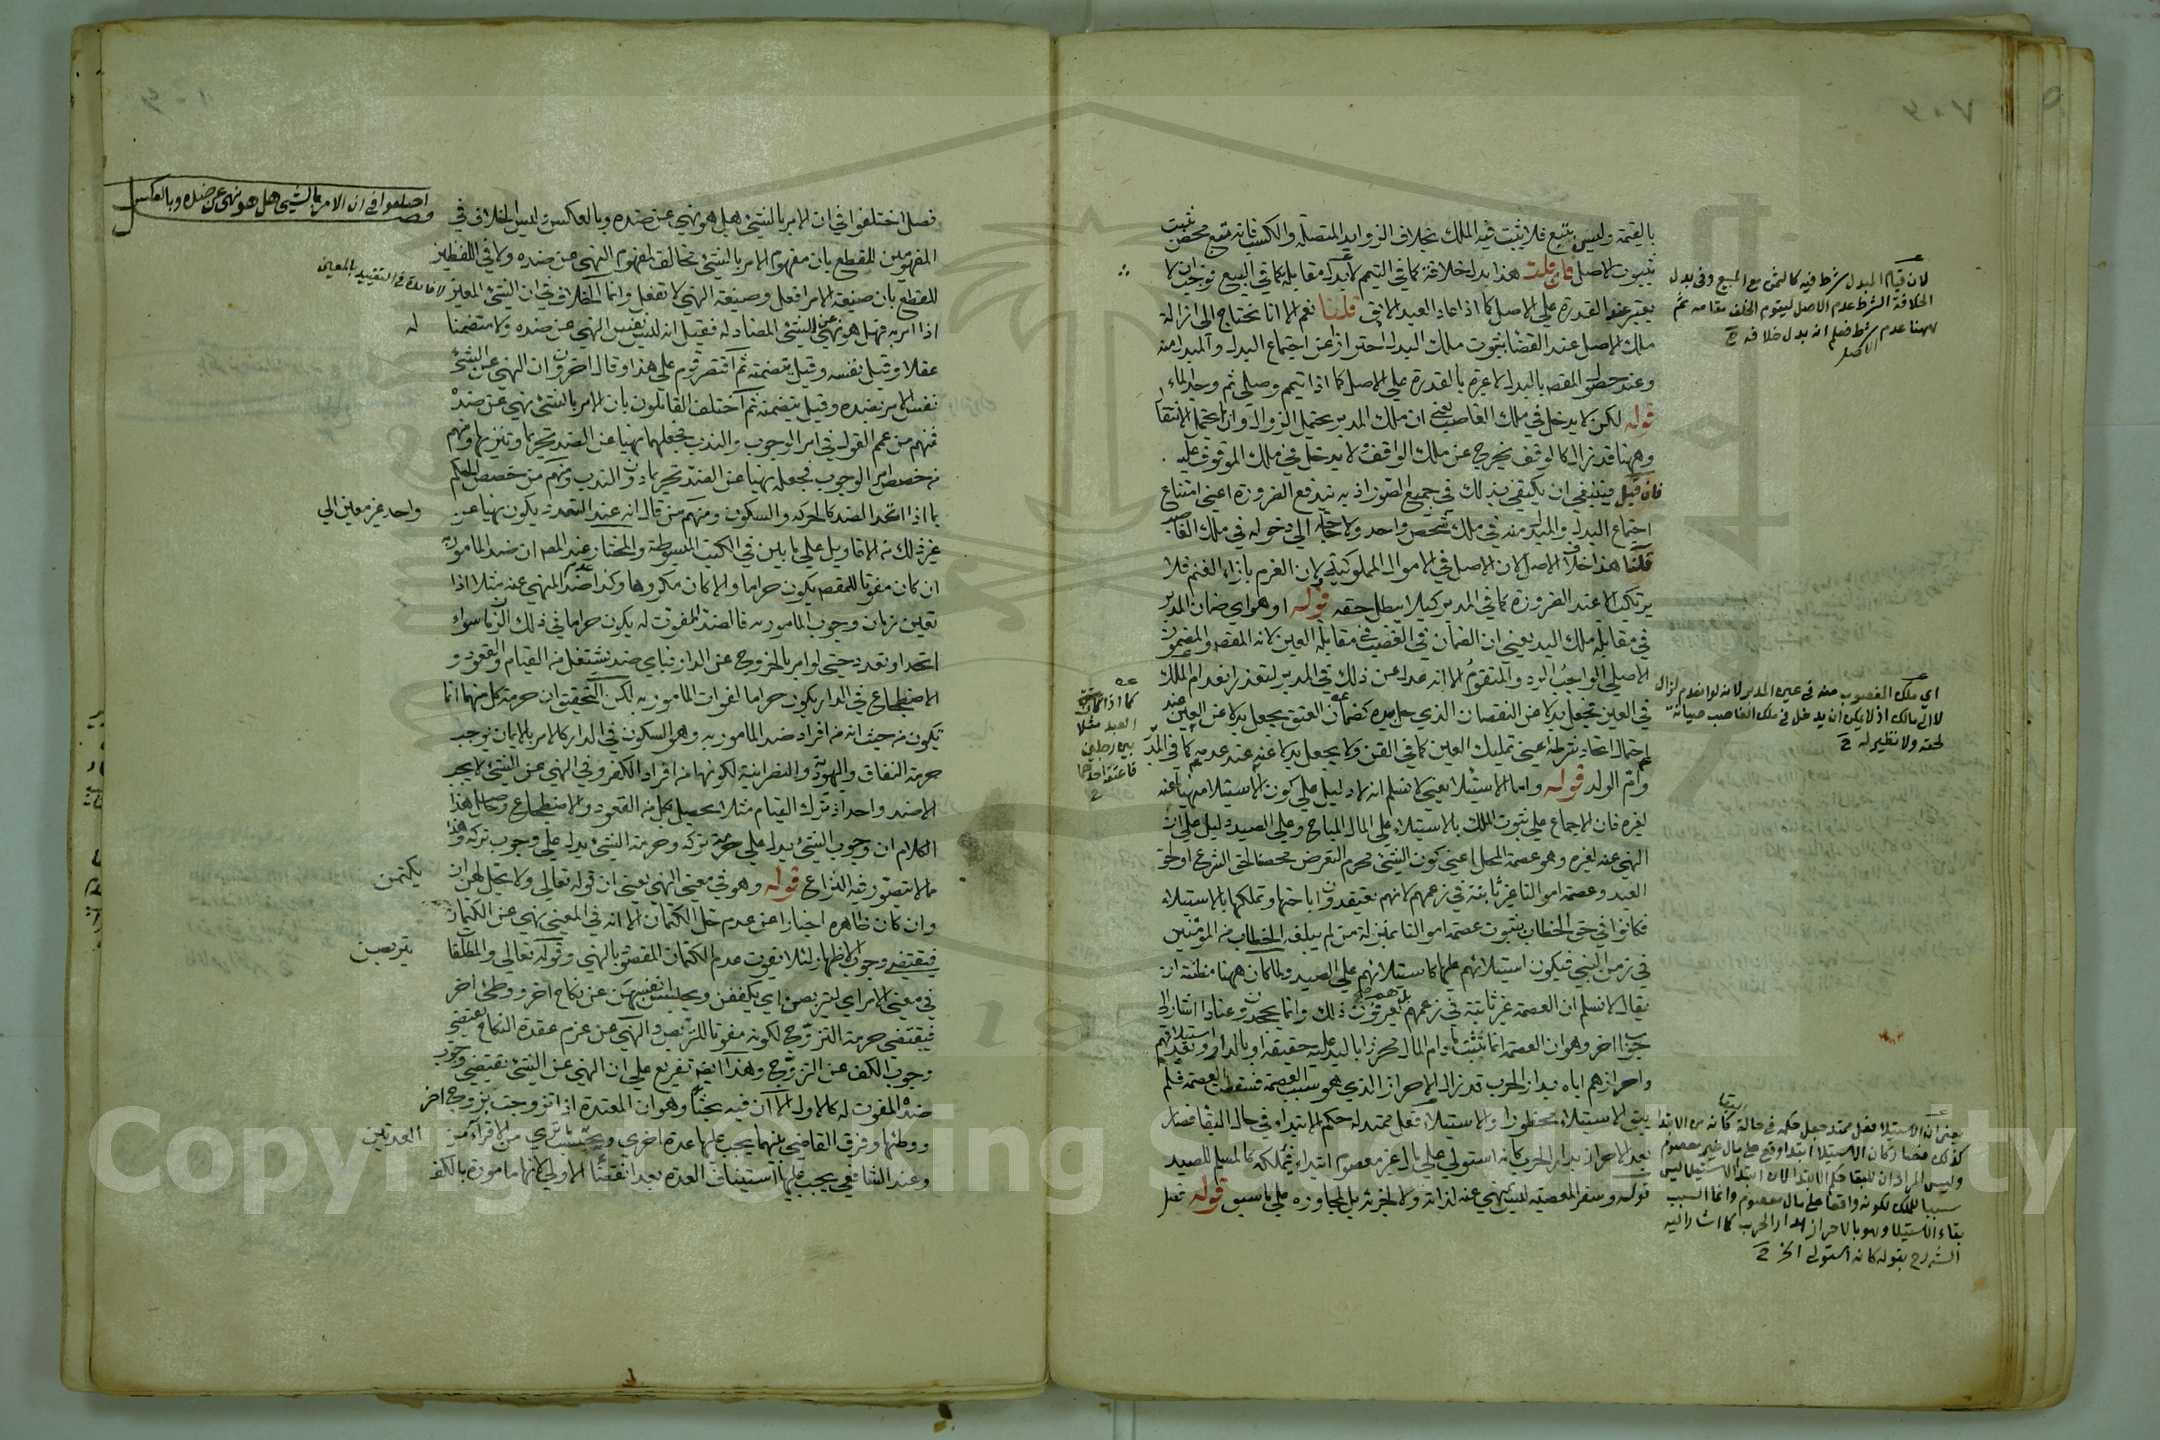 بالقيمة وليس بتبع فلا يثبت فيه الملك بخلاف الزوايد المتصلة والكسب فانه تبع محض يثبت
بثبوت الاصل فان قلت هذا بدل خلافة كما في التيمم لا بدل مقابلة كما في البيع فوجب ان لا
يعتبر عند القدرة على الاصل كما اذا عاد العبد الابق قلنا نعم الا انا نحتاج الى ازالة
ملك الاصل عند القضا بثبوت ملك البدل احترازا عن اجتماع البدل والمبدل منه
وعند حصول المقص بالبدل لا عبرة بالقدرة على الاصل كما اذا تيمم وصلى ثم وجد الماء
قوله لكن لا يدخل في ملك الغاصب يعني ان ملك المدبر يحتمل الزوال وان لم يحتمل الانتقال
وههنا قد زال كالوقف يخرج عن ملك الواقف لا يدخل في ملك الموقوف عليه
فان قيل فينبغي ان يكتفى بذلك في جميع الصور اذ به تندفع الضرورة اعني امتناع
اجتماع البدل والمبدل منه في ملك شخص واحد ولا حاجة الى دخوله في ملك الغاصب
قلنا هذا خلاف الاصل لان الاصل في الاموال المملوكية لان الغرم بازاء الغنم فلا
يرتكب الا عند الضرورة كما في المدبر كيلا يبطل حقه قوله او هو اي ضمان المدبر
في مقابلة ملك اليد يعني ان الضمان في الغصب في مقابلة العين لانه المقصود المضمون
الاصلي الواجب الرد والمتقوم الا انه عدل عن ذلك في المدبر لتعذر انعدام الملك
في العين فجعل بدلا عن النقصان الذي حل بيده كضمان العتق يجعل بدلا عن العين عند
احتمال ايجاد شرطه اعني تمليك العين كما في القن ولا يجعل بدلا عنه عند عدمه كما في المدبر
وام الولد قوله واما الاستيلا يعني لا نسلم انه لا دليل على كون الاستيلا منهيا عنه
لغيره فان الاجماع على ثبوت الملك بالاستيلاء على المال المباح وعلى الصيد دليل على ان
النهي عنه لغيره وهو عصمة المحل اعني كون الشئ محرم التعرض محضا لحق الشرع او لحق
العبد وعصمة اموالنا غير ثابتة في زعمهم لانهم يعتقدون اباحتها وتملكها بالاستيلاء
فكانوا في حق الخطاب بثبوت عصمة اموالنا بمنزلة من لم يبلغه الخطاب من المؤمنين
في زمن النبي فيكون استيلائهم عليها كاستيلائهم على الصيد ولما كان ههنا مظنة ان
يقال لا نسلم ان العصمة غير ثابتة في زعمهم بل هم يعرفون ذلك وانما يجحدون عنادا اشار الى
جواب اخر وهو ان العصمة انما تثبت ما دام المال محرزا باليد عليه حقيقة او بالدار وبعد استيلائهم
واحرازهم اياه بدار الحرب قد زال الاحراز الذي هو سبب العصمة فسقطت العصمة فلم
يبق الاستيلاء محظورا والاستيلاء فعل ممتد له حكم الابتداء في حالة البقا فصار
بعد الاحراز بدار الحرب كانه استولى على مال غير معصوم ابتداء فيملكه كالمسلم للصيد
قوله وسفر المعصية ليس بنهي عنه لذاته ولا لجزئه بل لمجاوره على ما سبق قوله فصل
لان قيام المبدل شرط فيه كالثمن مع المبيع وفي بدل
الخلافة الشرط عدم الاصل ليقوم الخلف مقامه ثم
ههنا عدم الاصل شرط فعلم انه بدل خلافه ح
اي ملك المغصوب منه في عين المدبر لانه لو انعدم لزال
لا الى مالك اذ لا يمكن ان يدخل في ملك الغاصب صيانة
لحقه ولا نظير له ح
كما اذا كان
العبد مثلا
بين رجلين
فاعتق احدهما
ح
يعني ان الاستيلا فعل ممتد جعل حكمه في حالة البقا كانه من الابتدا
كذلك فصار كان الاستيلا ابتدا وقع على مال غير معصوم
وليس المراد ان للبقا حكم الابتدا لان ابتدا الاستيلا ليس
سببا للملك لكونه واقعا على مال معصوم وانما السبب
بقاء الاستيلا وهو بالاحراز بدار الحرب كما اشار اليه
الشرح بقوله كانه استولى الخ ح
فصل اختلفوا في ان الامر بالشئ هل هو نهي عن ضده وبالعكس وليس الخلاف في
المفهومين للقطع بان مفهوم الامر بالشئ مخالف لمفهوم النهي عن ضده ولا في اللفظين
للقطع بان صيغة الامر افعل وصيغة النهي لا تفعل وانما الخلاف في ان الشئ المعين
اذا امر به فهل هو نهي عن الشئ المضاد له فقيل انه ليس نفس النهي عن ضده ولا متضمنا
عقلا وقيل نفسه وقيل يتضمنه ثم اقتصر قوم على هذا وقال اخرون ان النهي عن الشئ
نفس الامر بضده وقيل يتضمنه ثم اختلف القائلون بان الامر بالشئ نهي عن ضده
فمنهم من عمم القول في امر الوجوب والندب فجعلهما نهيا عن الضد تحريما وتنزيها ومنهم
من خصص امر الوجوب فجعله نهيا عن الضد تحريما دون الندب ومنهم من خصص الحكم
بما اذا اتحد الضد كالحركة والسكون ومنهم من قال انه عند التعدد يكون نهيا عن
غير ذلك من الاقاويل على ما بين في الكتب المبسوطة والمختار عند المص ان ضد المامور به
ان كان مفوتا للمقص يكون حراما والا كان مكروها وكذا عدم ضد المنهي عنه مثلا اذا
تعين زمان وجوب المامور به فالضد المفوت له يكون حراما في ذلك الزمان سواء
اتحد او تعدد حتى لو امر بالخروج عن الدار فباي ضد يشتغل من القيام والقعود و
الاضطجاع في الدار يكون حراما لفوات المامور به لكن التحقيق ان حرمة كل منها انما
تكون من حيث انه من افراد ضد المامور به وهو السكون في الدار كالامر بالايمان يوجب
حرمة النفاق واليهودية والنصرانية لكونها من افراد الكفر وفي النهي عن الشئ لا يجب
الا ضد واحد اذ ترك القيام مثلا يحصل بكل من القعود والاضطجاع وحاصل هذا
الكلام ان وجوب الشئ يدل على حرمة تركه وحرمة الشئ يدل على وجوب تركه وهذا
مما لا يتصور فيه النزاع قوله وهو في معنى النهي يعني ان قوله تعالى ولا يحل لهن ان
وان كان ظاهره اخبارا عن عدم حل الكتمان الا انه في المعنى نهي عن الكتمان
فيقتضي وجوب الاظهار لئلا يفوت عدم الكتمان المقصود بالنهي وقوله تعالى والمطلقات
في معنى الامر اي ليتربصن اي يكففن ويحبسن انفسهن عن نكاح اخر ووطئ اخر
فيقتضي حرمة التزوج لكونه مفوتا للتربص والنهي عن عزم عقدة النكاح يقتضي
وجوب الكف عن التزوج وهذا ايضا تفريع على ان النهي عن الشئ يقتضي وجوب
ضده المفوت له كالاول الا ان فيه بحثا وهو ان المعتدة اذا تزوجت بزوج اخر
ووطئها وفرق القاضي بينهما يجب عليها عدة اخرى ويحتسب ما ترى من الاقراء من
وعند الشافعي يجب عليها استيناف العدة بعد انقضاء الاولى لانها مامورة بالكف
اختلفوا في ان الامر بالشئ هل هو نهي عن ضده وبالعكس
فصل
لا فائدة في التقييد بالمعين
له
واحد غير معين الى
يكتمن
يتربصن
العدتين
Copyright © King Saud University
1957